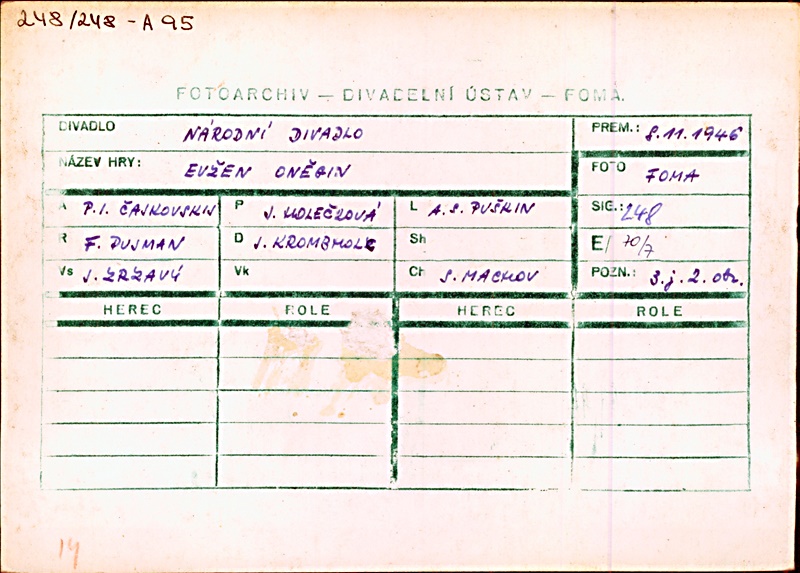 248/248 - A 95
FOTOARCHIV — DIVADELNÍ ÚSTAV — FOMA.
DIVADLO NÁRODNÍ DIVADLO PREM.: 8.11.1946
NÁZEV HRY: EVŽEN ONĚGIN FOTO FOMA
A P.I. ČAJKOVSKIJ P J. HOLEČKOVÁ L A.S. PUŠKIN SIG.: 248
R F. PUJMAN D J. KROMBHOLC Sh E/ 70/7
Vs J. ZRZAVÝ Vk Ch S. MACHOV POZN.: 3.j. 2. obr.
HEREC ROLE HEREC ROLE
14